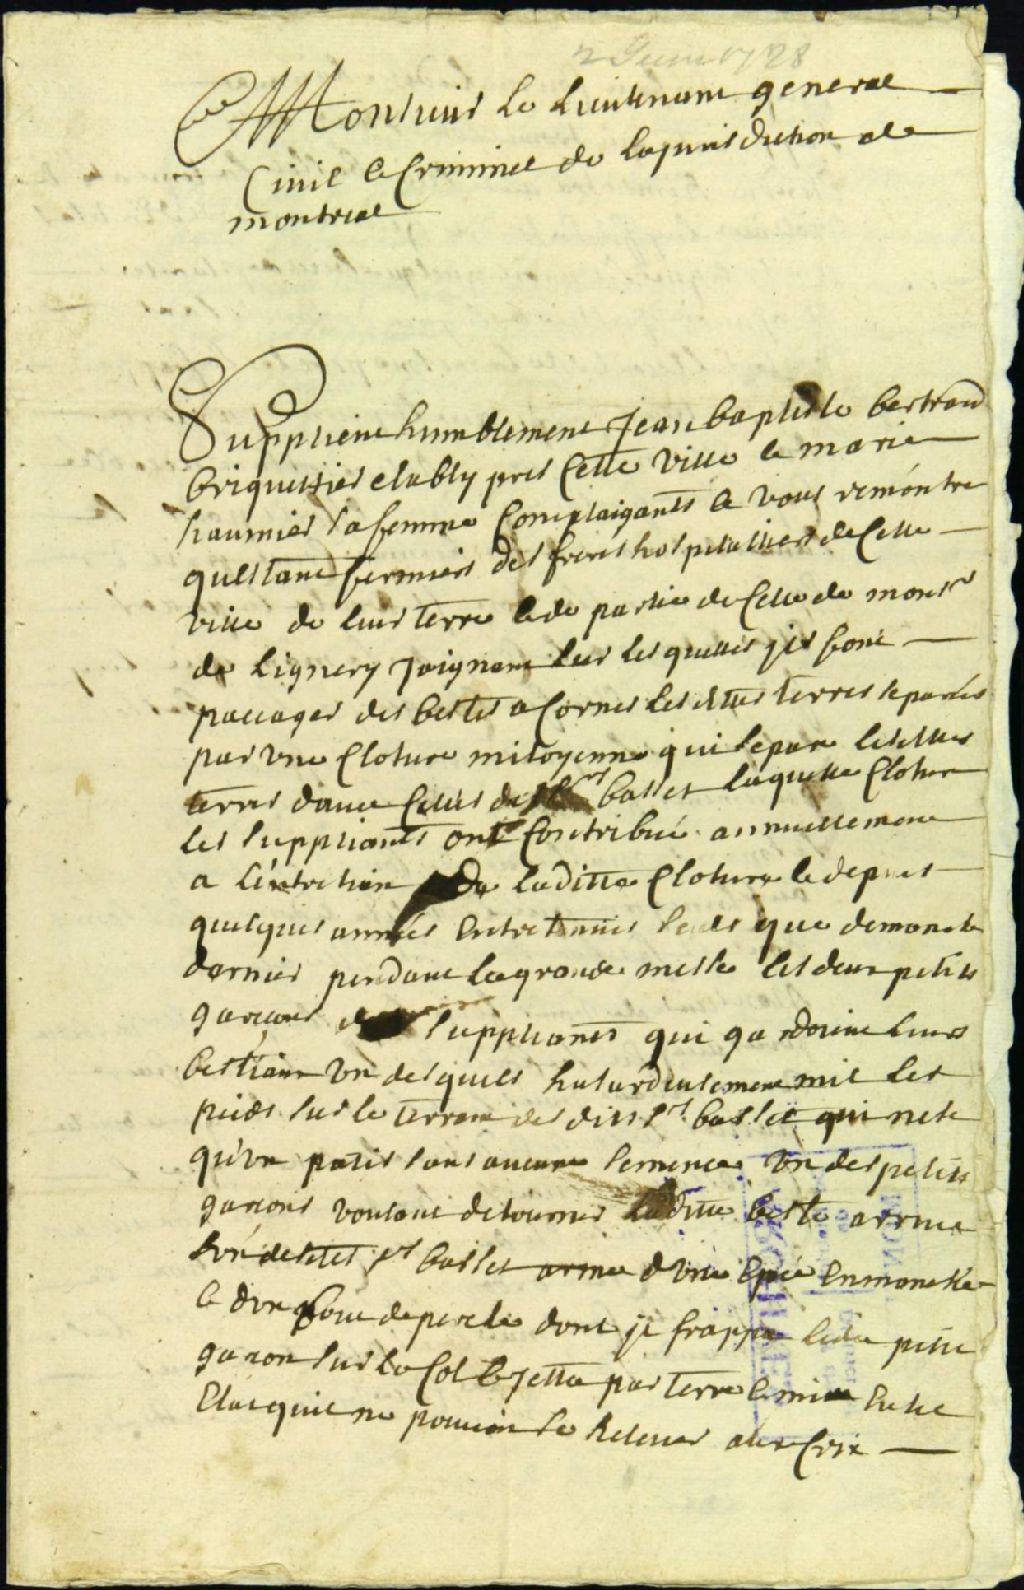 2 Juin 1728
A Monsieur Le Lieutenant general
Civil et Criminel de la jurisdiction de
montreal
Supplient humblement Jean baptiste bertrand
briquettier etably pres Cette ville et marie
haumier sa femme Complaignants et vous remontre
questant fermiers des freres hospitalliers de Cette
ville de leur terre et de partie de Celle de monsr
de Lignery Joignant sur lesquelles jls font
paccager des bestes a Cornes lesdittes terres separées
par une Cloture mitoyenne qui separe lesdittes
terres davec Celles des Srs basset laquelle Cloture
les suppliants ont Contribué annuellement
a Lentretien de laditte Cloture et depuis
quelques années entretenues seuls que dimanche
dernier pendant la grande messe les deux petits
garçons des suppliants qui gardoient leurs
bestiaux un desquels hasardeusement mit les
pieds sur le terrain desdits Srs basset qui nest
qu'un patis sans aucune semence un des petits
garçons voulant detourner laditte beste arriva
lun desdits Srs basset armé d'une epée enmanchée
et d'un bout de perche dont jl frappa ledit petit
garçon sur le Col et jetta par terre et mit en tel
Etat quil ne pouvoit se Relever aux Cris